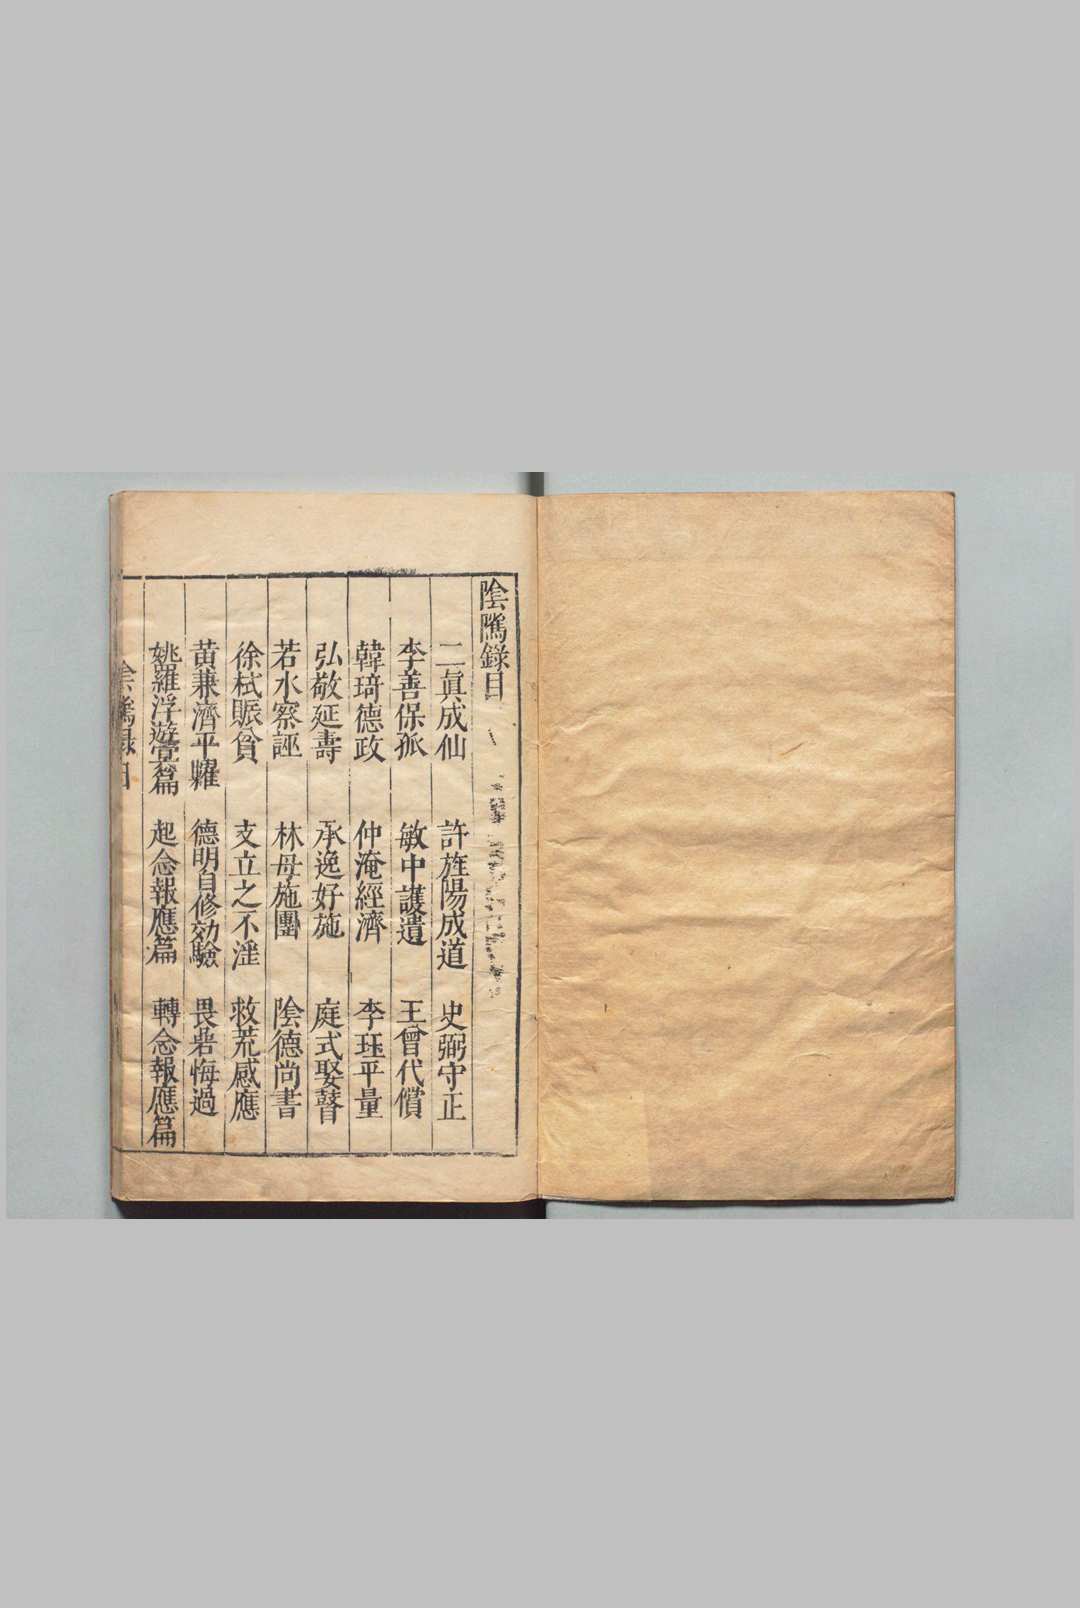 陰隲錄目
二眞成仙　許旌陽成道　史弼守正
李善保孤　敏中護遺　王曾代償
韓琦德政　仲淹經濟　李珏平量
弘敬延壽　承逸好施　庭式娶瞽
若水察誣　林母施團　陰德尚書
徐栻賑貧　支立之不淫　救荒感應
黄兼濟平糶　德明自修効驗　畏喾悔過
姚羅浮遊𡨋篇　起念報應篇　轉念報應篇
陰隲錄目